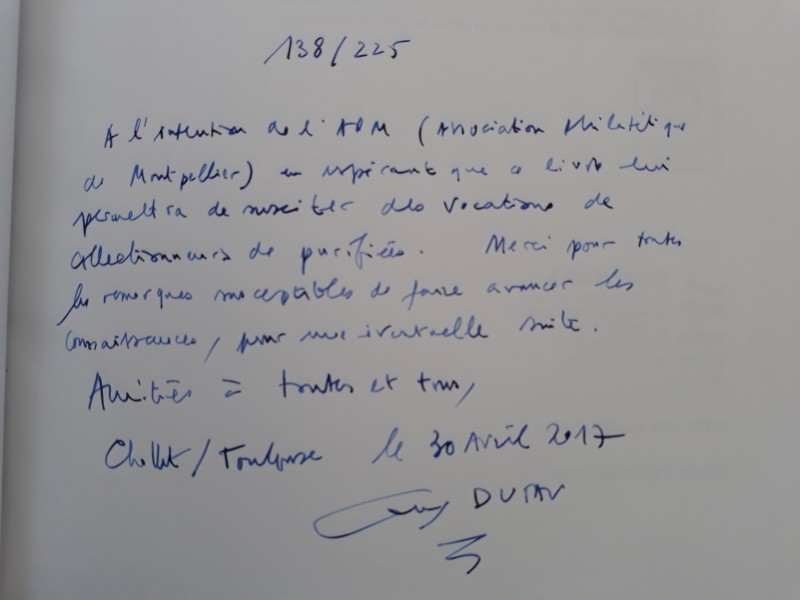 138/225
A l'intention de l'APM (Association Philatélique
de Montpellier) en espérant que ce livre lui
permettra de susciter des vocations de
collectionneurs de purifiées. Merci pour toutes
les remarques susceptibles de faire avancer les
connaissances, pour une éventuelle suite.
Amitiés à toutes et tous,
/Toulouse le 30 Avril 2017
Guy DUTAU